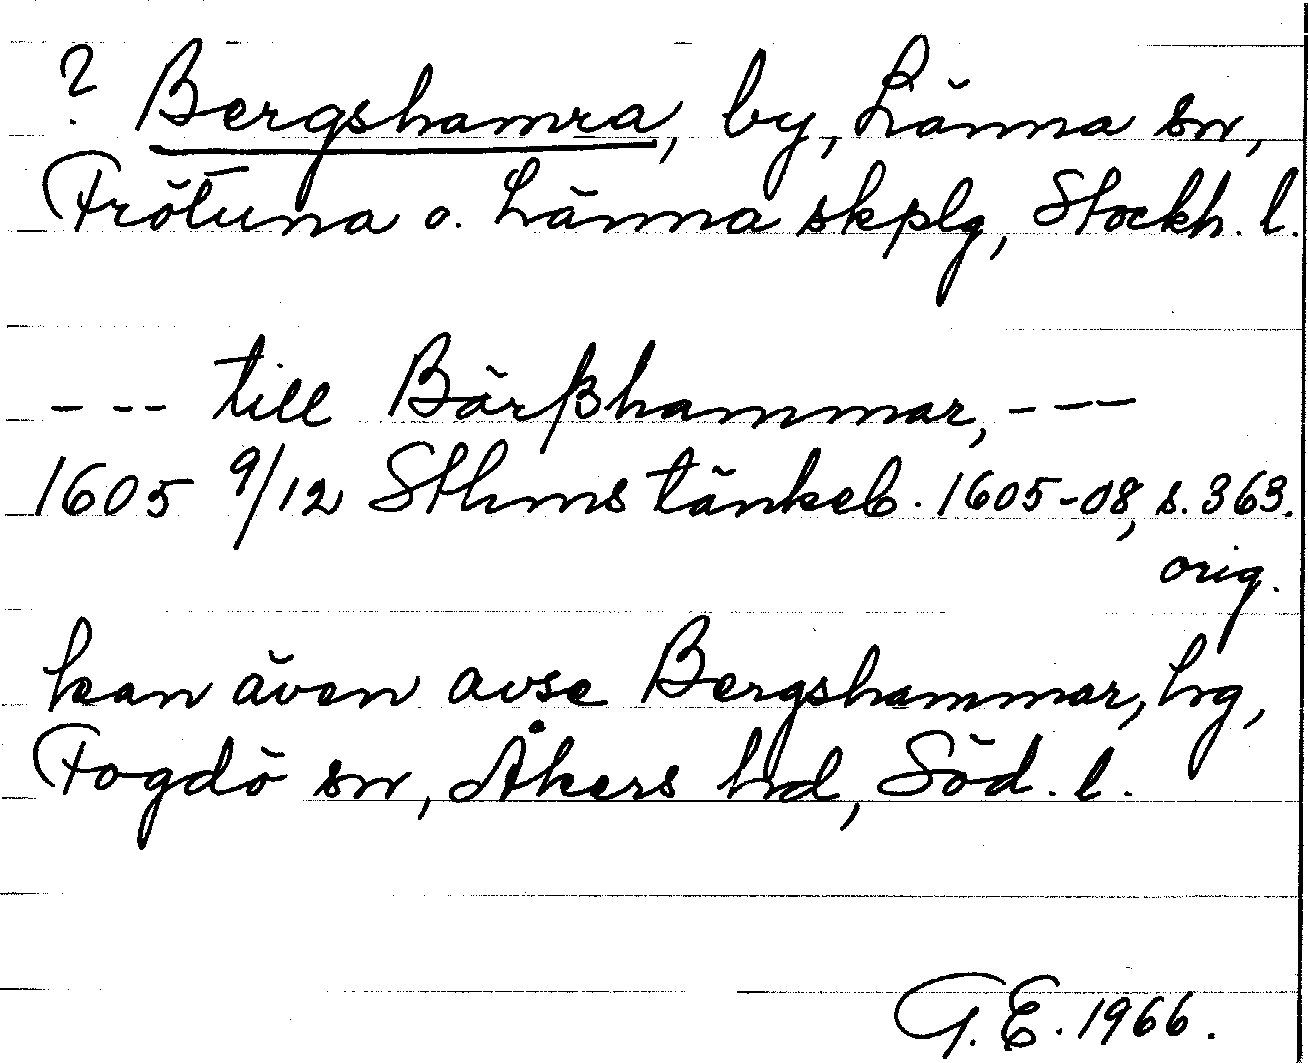 ? Bergshamra, by, Länna sn,
Frötuna o. Länna skplg, Stockh. l.
--- till Bärßhammar, ---
1605 9/12 Sthms tänkeb. 1605-08, s. 363.
orig.
kan även avse Bergshammar, hg,
Fogdö sn, Åkers hd, Söd. l.
G. E. 1966.